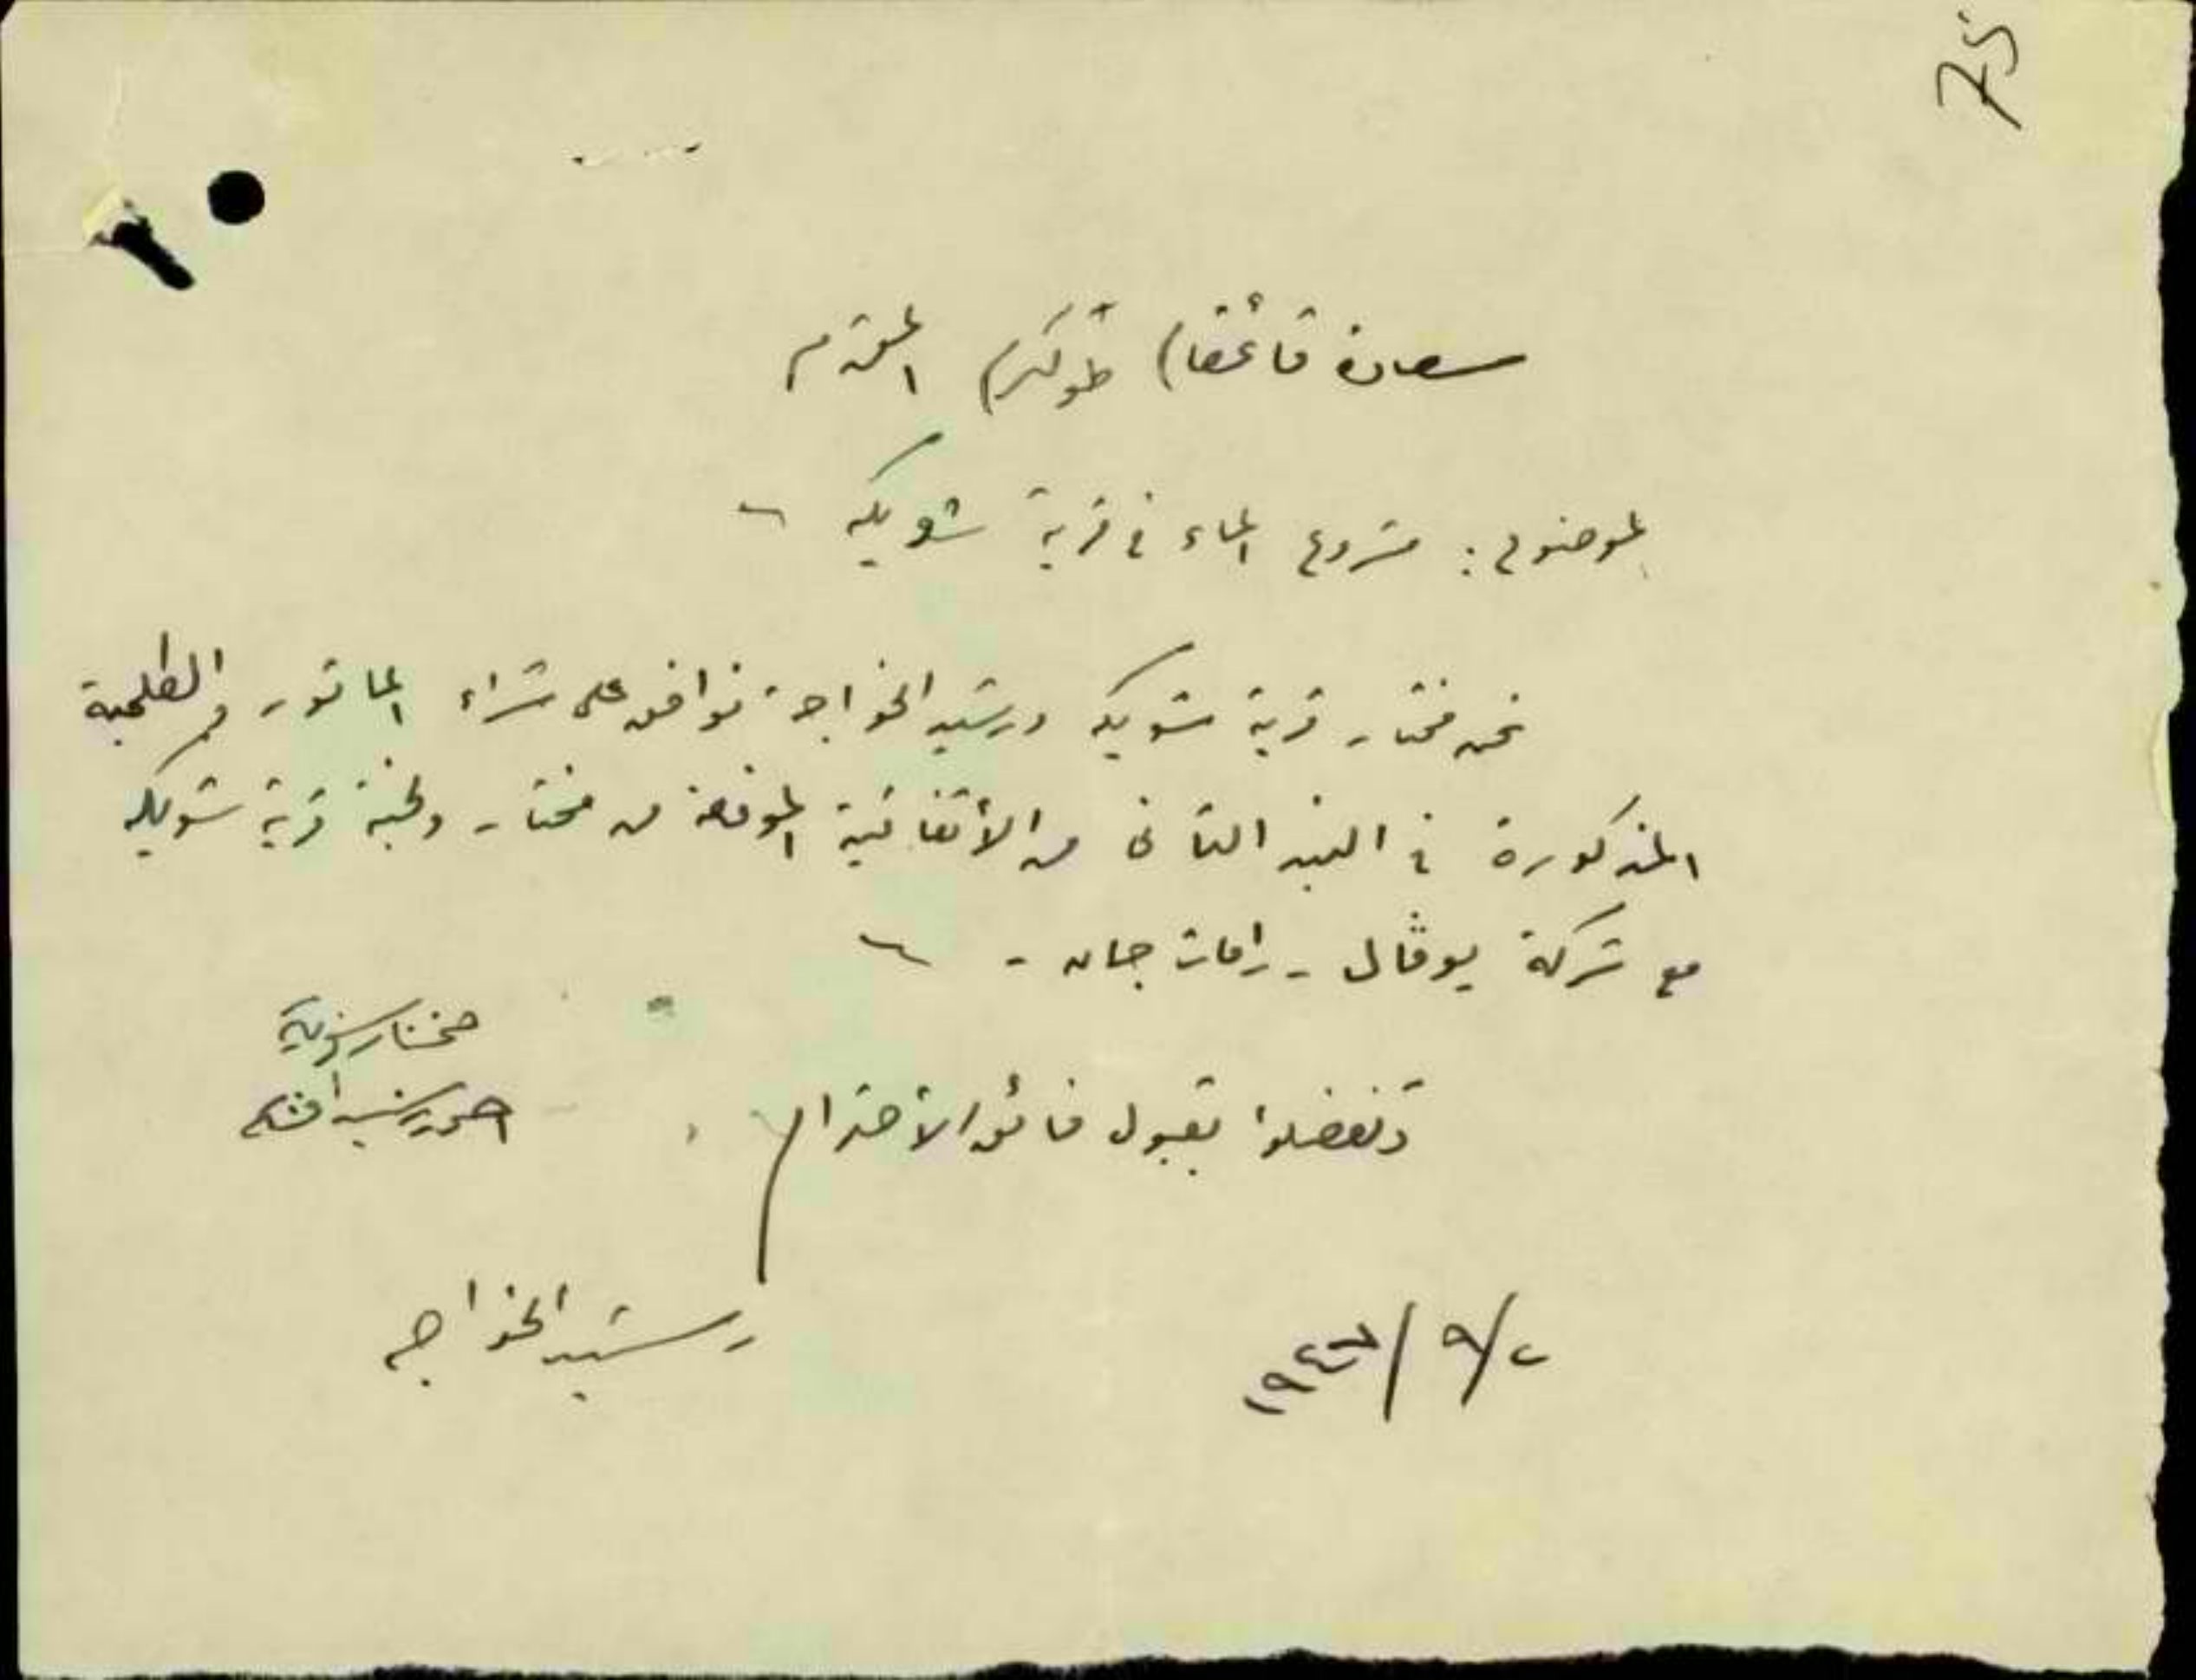 75
سعادة قائمقام طولكرم المحترم
الموضوع : مشروع الماء في قرية شويكه
نحن مختار قرية شويكه ورشيد الخواجة نوافق على شراء الماتور والطلمبة
المذكورة في البند الثاني من الأتفاقية الموقعة من مختار ولجنة قرية شويكه
مع شركة يوڤال - رامات جان -
مختار شويكة
احمد رشيد
وتفضلوا بقبول فائق الأحترام
رشيد الخواجه
٢/٩/١٩٤٦